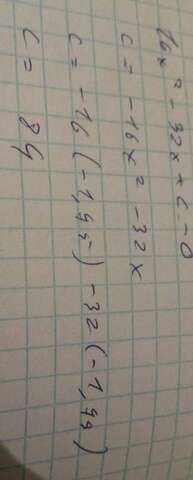 16x² - 32x + c = 0
c = -16x² - 32x
c = -16 (-1,75) - 32 (-1,75)
c = 84